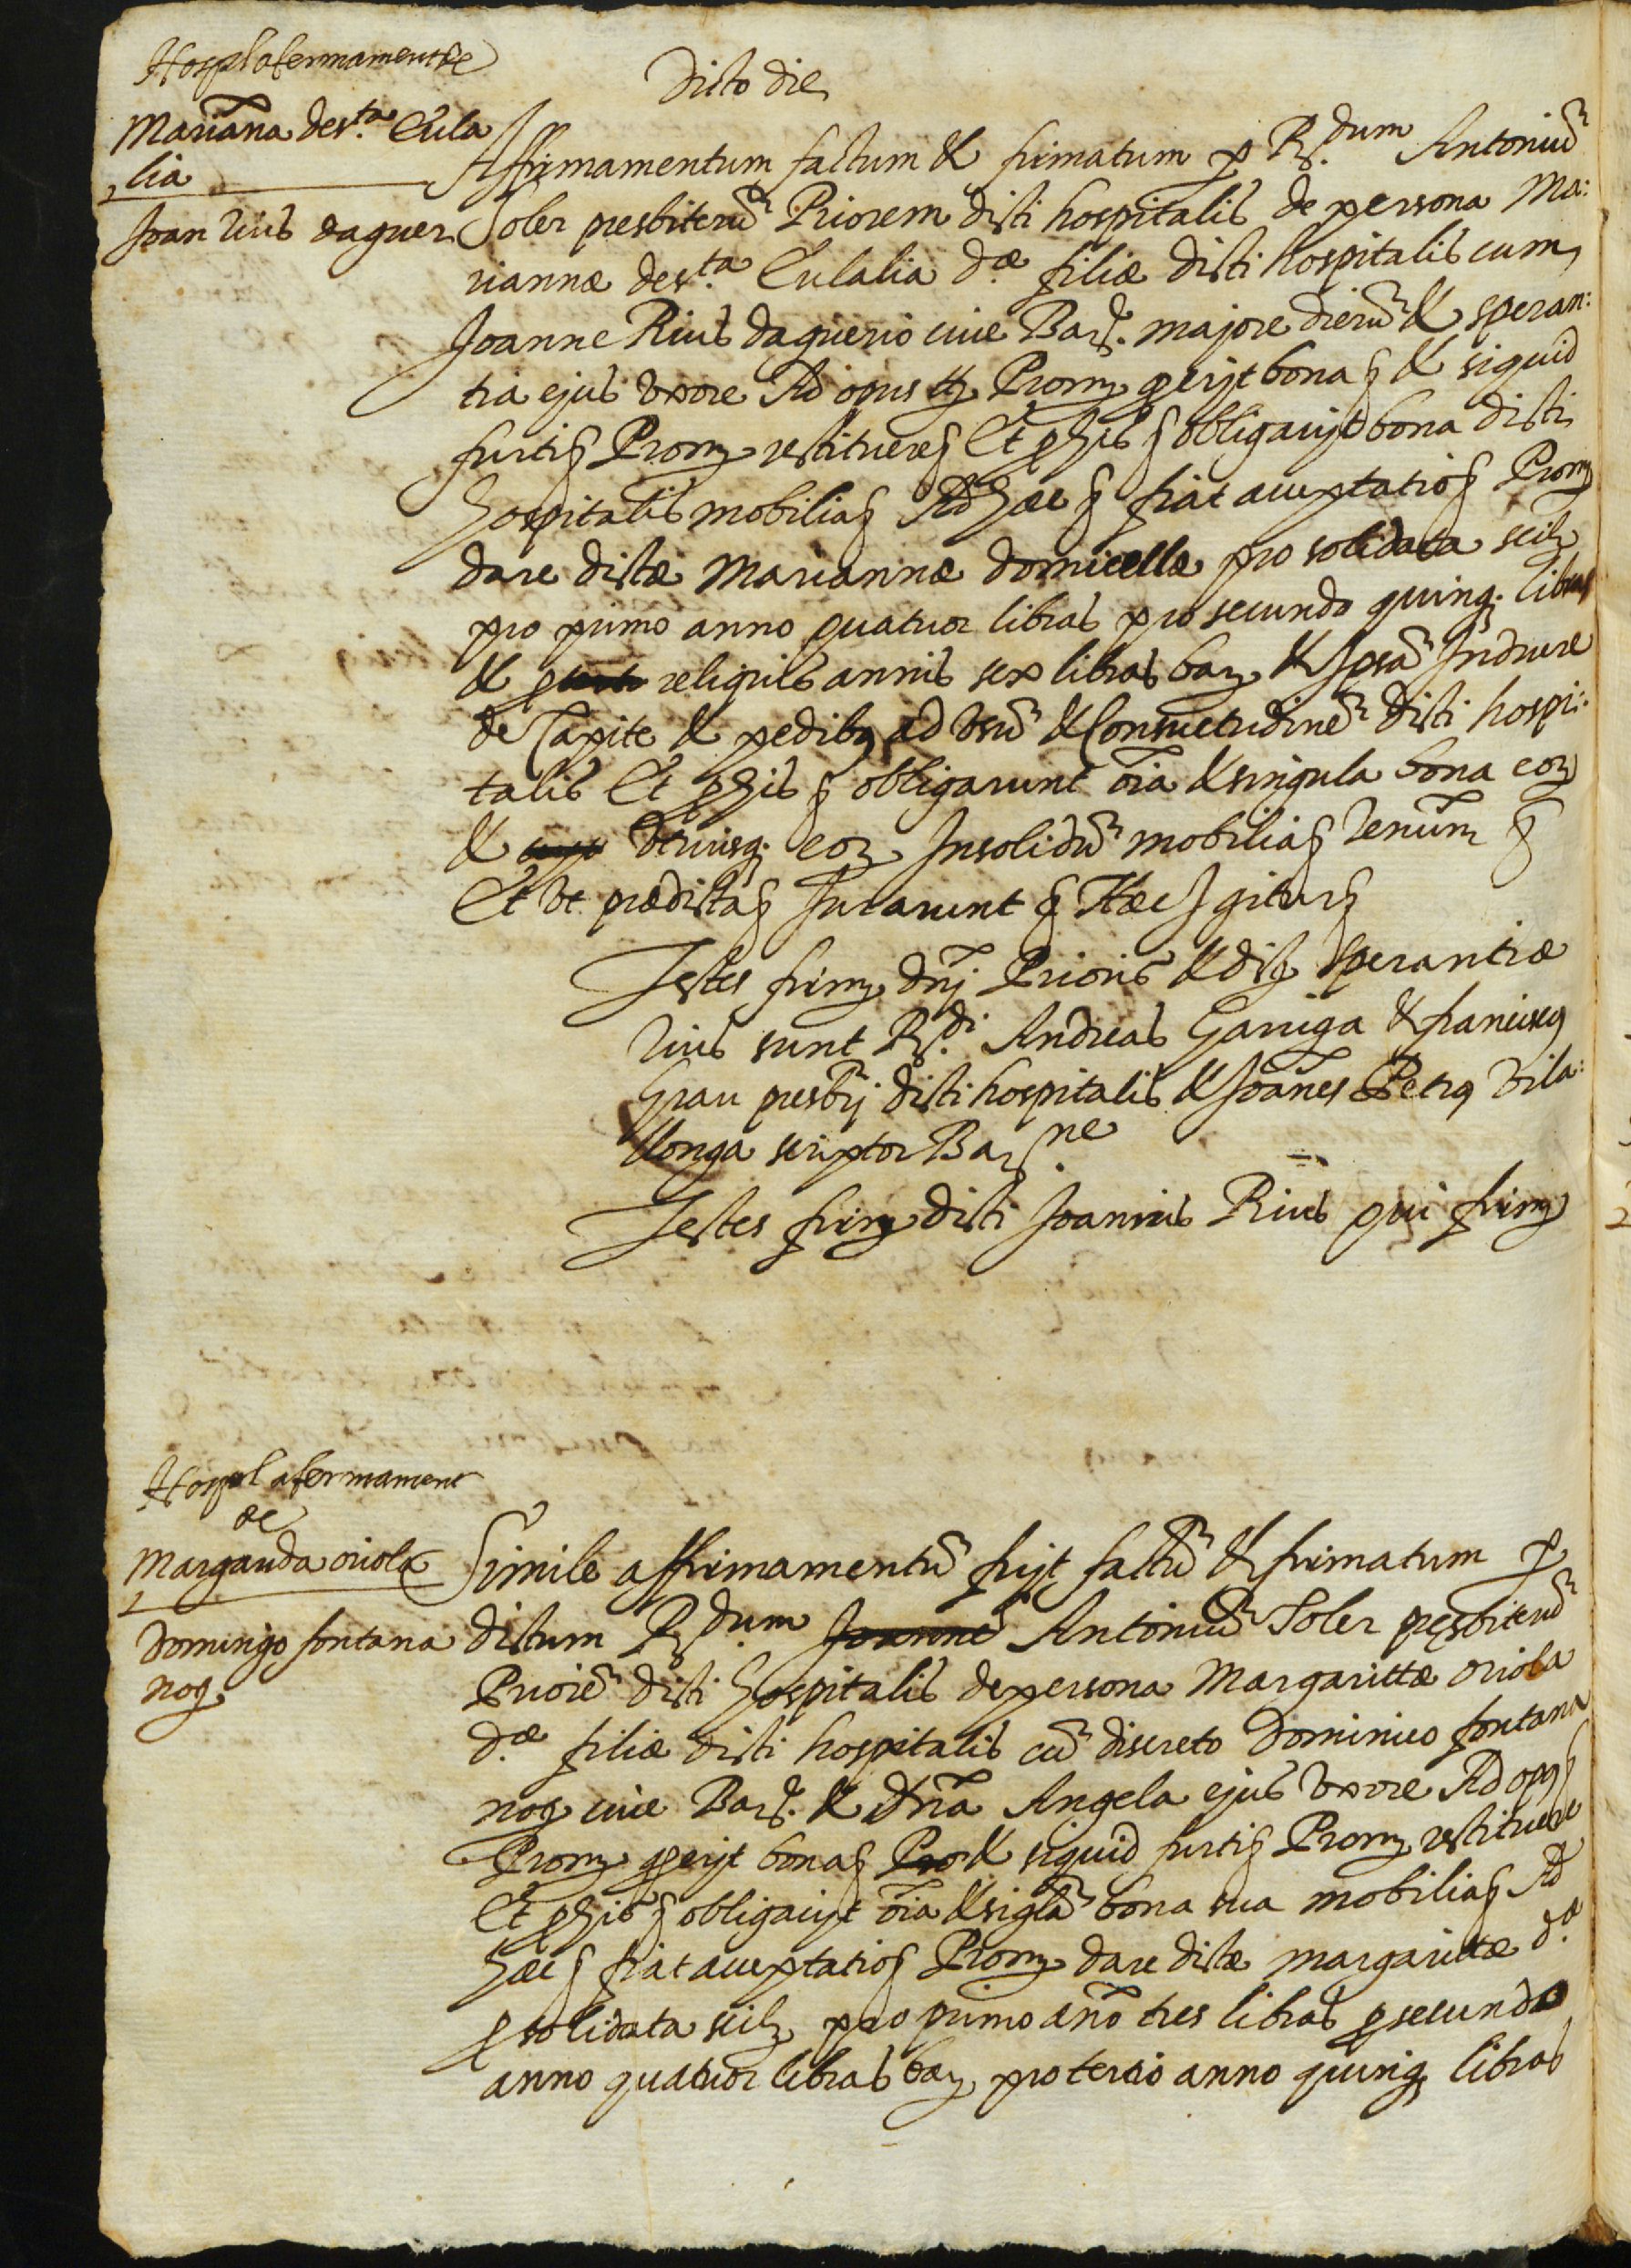 Hospl afermament de
Dicto die
Mariāna de sta. Eula
lia
Joan rius daguer
Affirmamentum factum & firmatum p Rdum Antoniū
Soler presbiterū Priorem dicti hospitalis de persona Ma:
riannæ de sta. Eulalia dæ. filiæ dicti hospitalis cum
Joanne Rius daguerio cive Bar. majore dierū & speran:
tia ejus uxore Ad opus Prom gerijt bona & siquid
furti Prom restituere Et p his obligavit bona dicti
hospitalis mobilia Ad hæc fiat acceptatio Prom
dare dictæ Mariannæ domicellæ pro solidata scilz
pro primo anno quatuor libras pro secundo quinq. libras
& reliquis annis sex libras bar & Ipsā Induere
de Capite & pedibq ad usū & Consuetudinē dicti hospi:
talis Et p his obligarunt ōia & singula bona eoz
& utriusq. eoz Insolidū mobilia Renūn
Et Ut prædicta Jurarunt Hæc Igitur
Testes firm dnj Prioris & dict Sperantiæ
rius sunt Rdi. Andreas Garriga & franciscq
Grau presbrj dicti hospitalis & Joānes Petrq Vila:
llonga scriptor Barne.
Testes firm dicti Joannis Rius qui firm
Hospl afermament
de
Margarida oriola
Domingo fontana
noq
Simile affirmamentū fijt factū & firmatum p
dictum Rdum Joannē Antoniū Soler presbiterū
Priorē dicti hospitalis de persona Margarittæ oriola
dæ. filiæ dicti hospitalis cū discreto Dominico fontana
noq cive Bar. & dnā Angela ejus uxore Ad opq
Prom gerijt bona Pro & siquid furti Prom restituere
Et p his obligavijt ōia & siglā bona sua mobilia Ad
hæc fiat acceptatio Prom dare dictæ margarittæ dæ.
p solidata scilz pro primo anō tres libras p secundo
anno quatuor libras bar pro tercio anno quinq libras